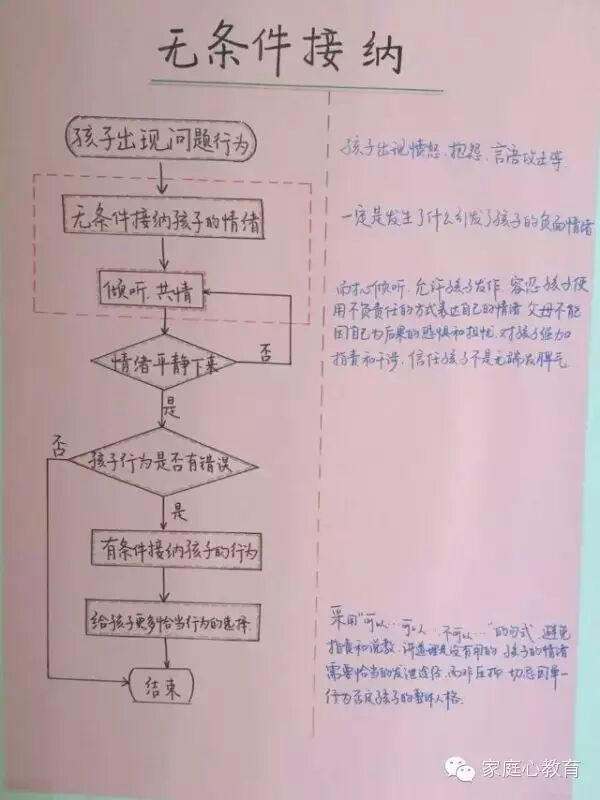 无条件接纳
孩子出现问题行为
孩子出现愤怒、抱怨、言语攻击等
无条件接纳孩子的情绪
一定是发生了什么引发了孩子的负面情绪
倾听、共情
耐心倾听、允许孩子发作、容忍孩子使
用不负责任的方式表达自己的情绪 父母不能
因自己为后果的恐惧和担忧、对孩子强加
指责和干涉、信任孩子不是无端发脾气
情绪平静下来
否
是
孩子行为是否有错误
否
是
有条件接纳孩子的行为
给孩子更多恰当行为的选择
采用"可以…可以…不可以…"的句式、避免
指责和说教、讲道理是没有用的 孩子的情绪
需要恰当的发泄途径、而非压抑 切忌因单一
行为否定孩子的整体人格.
结束
家庭心教育